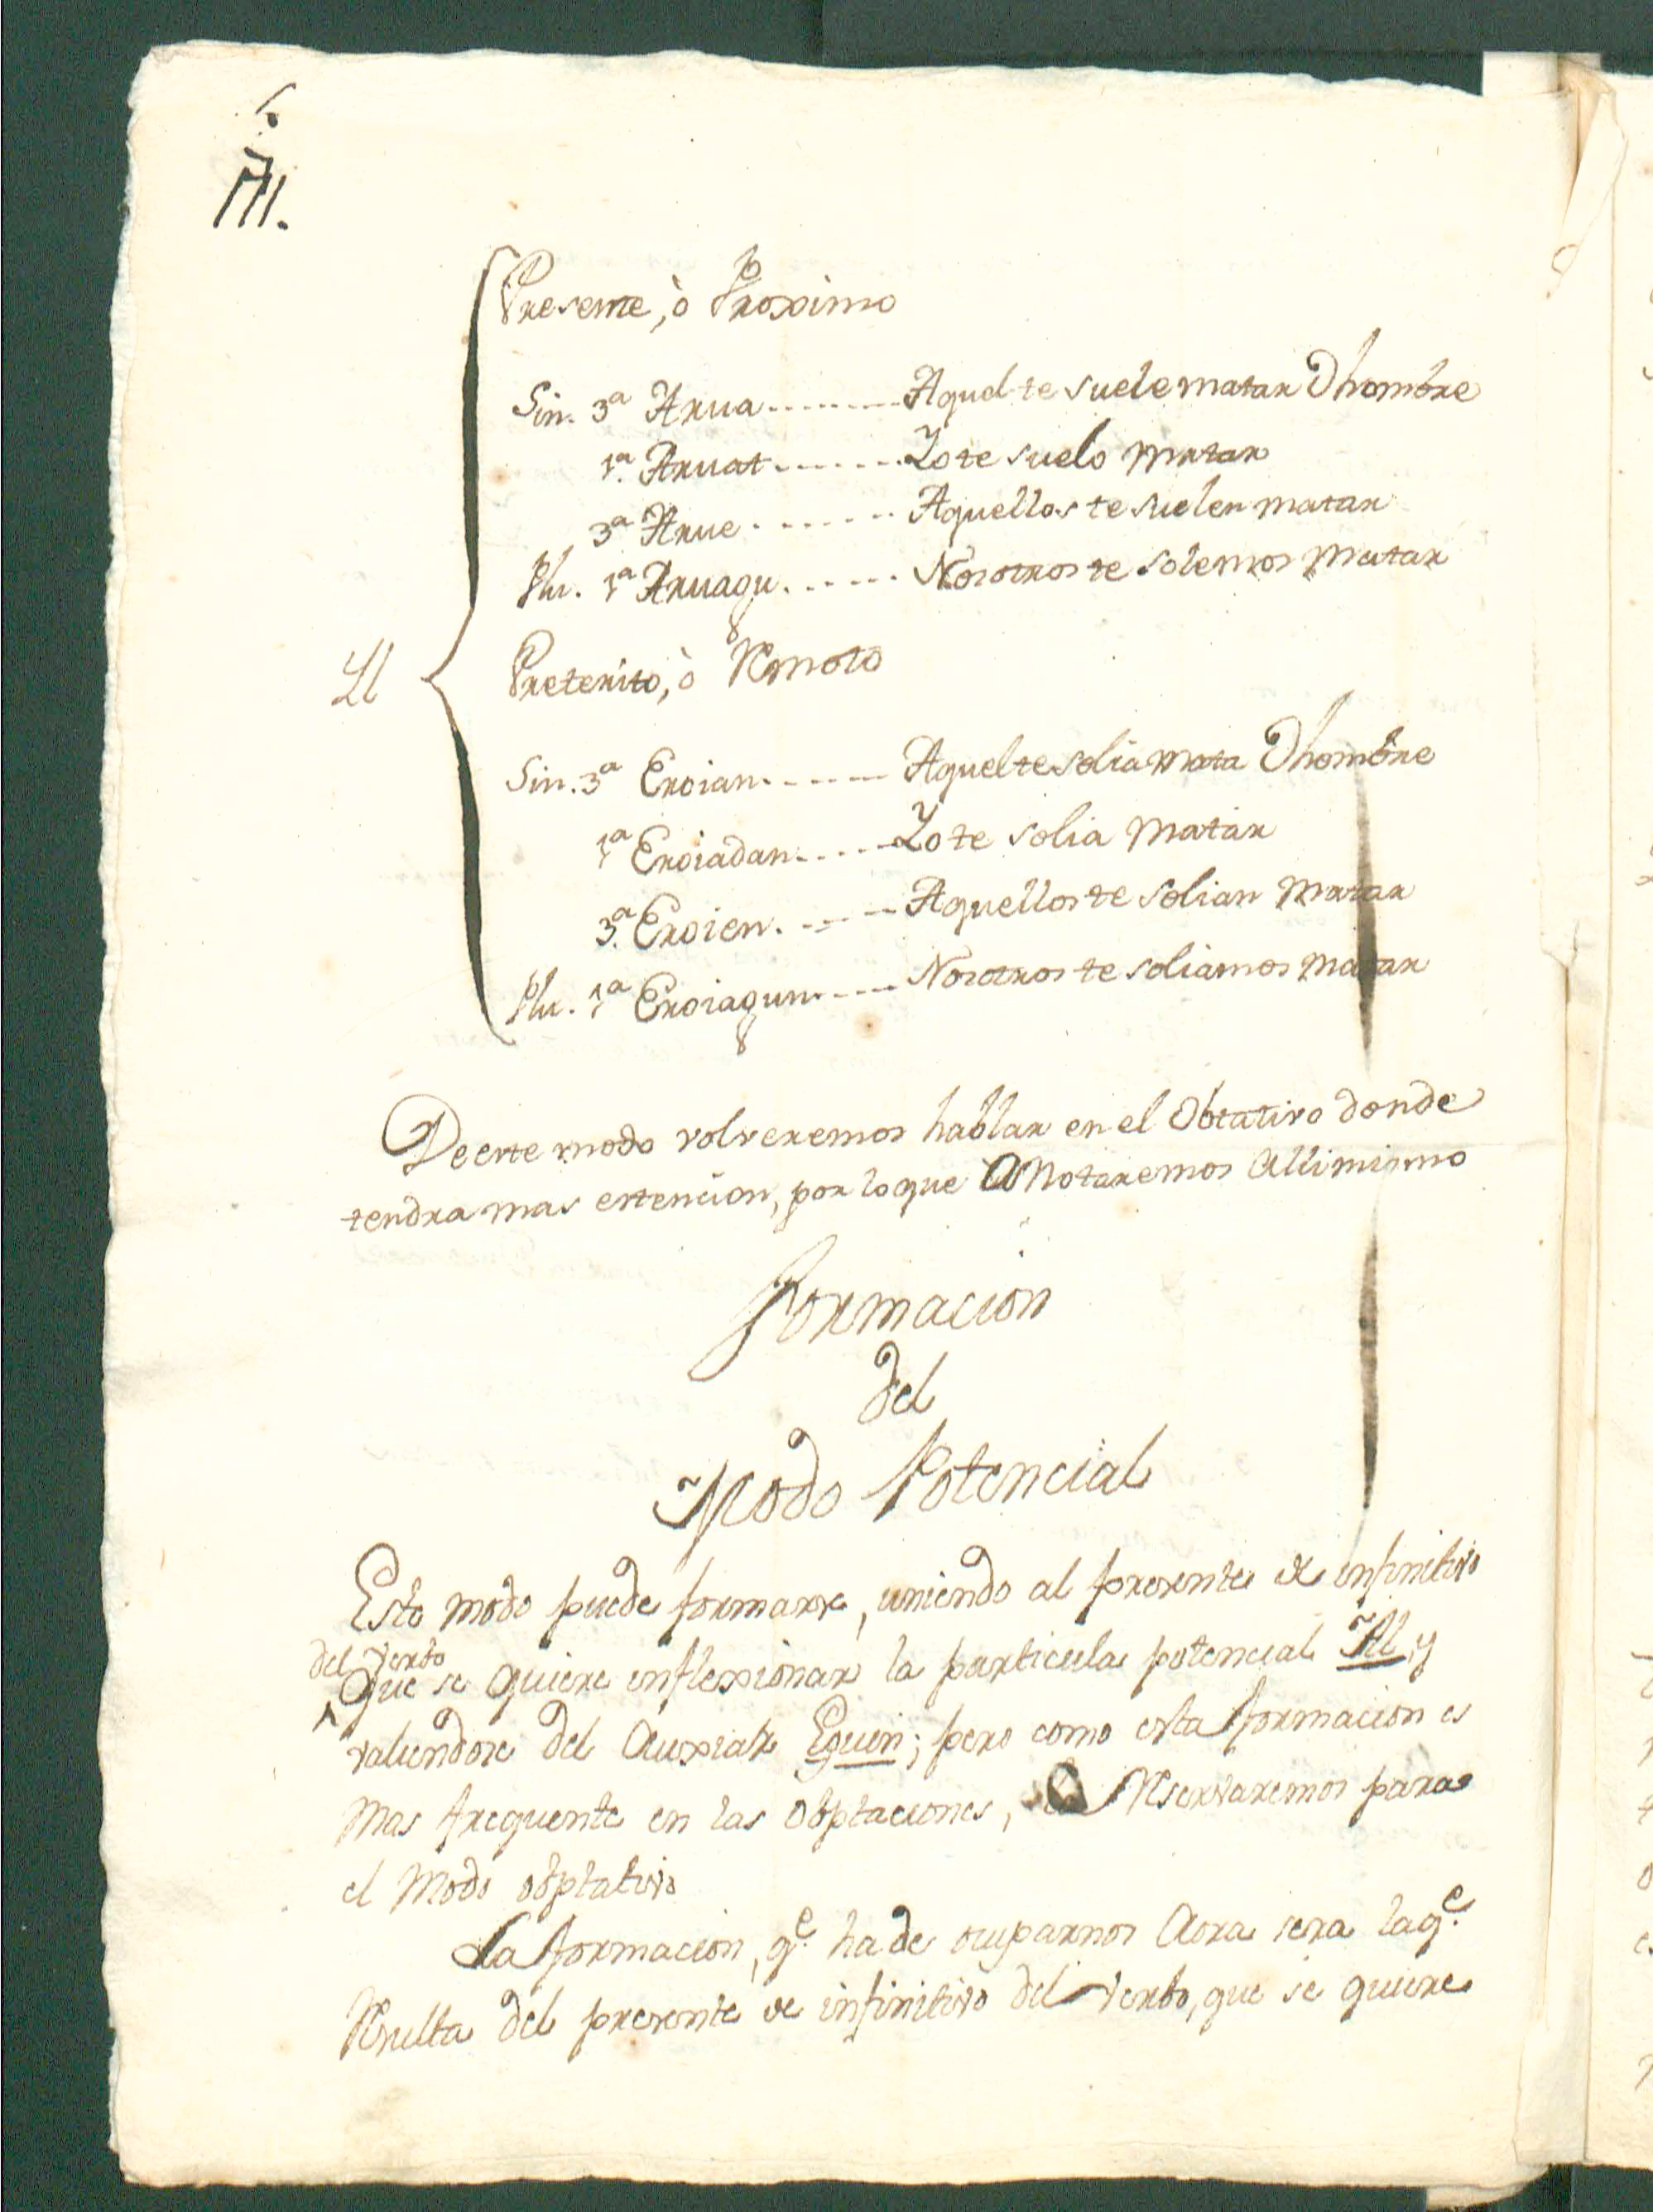 Presente, ò Proximo
Sin. 3ª Arua........Aquel te suele matar O hombre
1ª. Aruat.......Yo te suelo matar
3ª Arue.......Aquellos te suelen matar
Plu. 1ª Aruagu......Nosotros te solemos matar
Il
Preterito, ò Remoto
Sin. 3ª Eroian......Aquel te solia mata O hombre
1ª Eroiadan.....Yo te solia matar
3ª. Eroien.....Aquellos te solian matar
Plu. 1ª Eroiagun.....Nosotros te soliamos matar
De este modo volveremos hablar en el Obtativo donde
tendra mas estencion, por lo que Anotaremos alli mismo
Formacion
del
Modo Potencial
Este modo puede formarse, uniendo al presente de infinitivo
del verbo
que se quiere inflexionar la particula potencial Al, y
valiendose del Auxiar Eguin; pero como esta formacion es
mas frequente en las obptaciones, Reservaremos para
el Modo obptativo
La formacion, q.e ha de ocuparnos aora sera la q.e
Resulta del presente de infinitivo del verbo, que se quiere